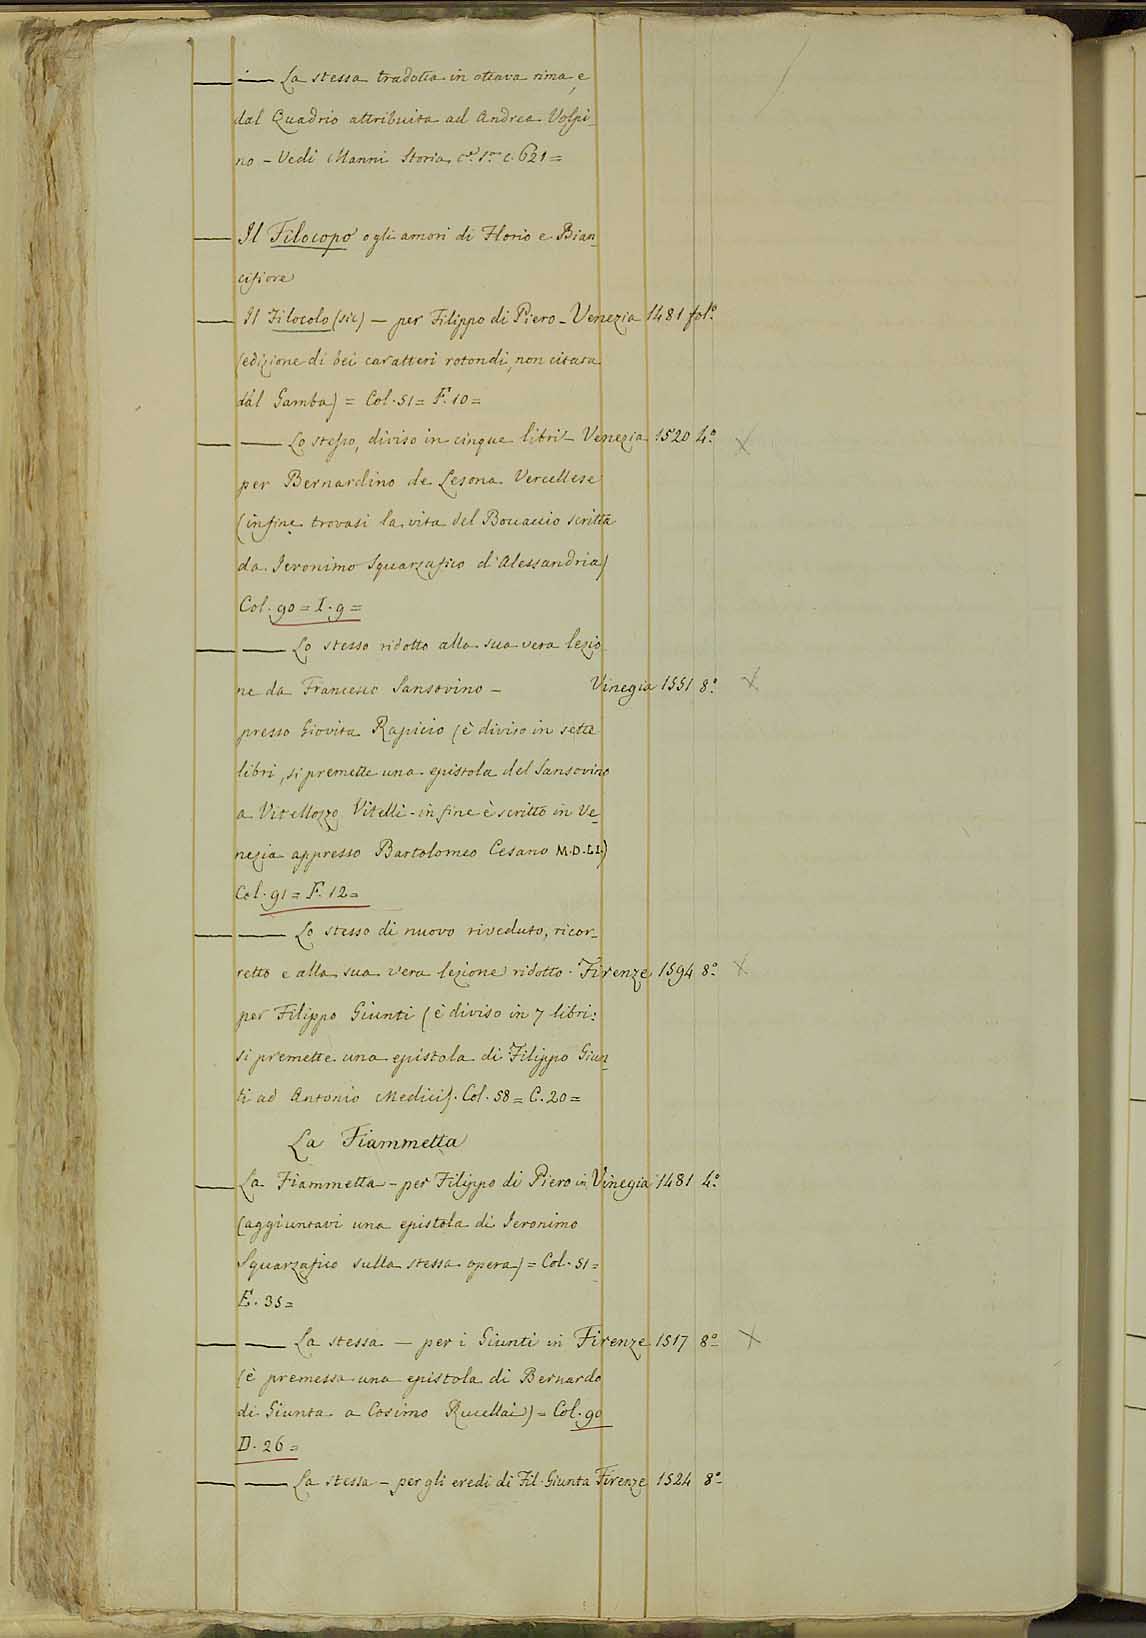 — — La stessa tradotta in ottava rima, e
dal Quadrio attribuita ad Andrea Volpi-
no - Vedi Manni Storia c. 621 =
— Il Filocopo o gli amori di Florio e Bian-
cifiore
— Il Filocolo (sic) — per Filippo di Piero - Venezia 1481 fol.º
(edizione di bei caratteri rotondi, non citata
dal Gamba) = Col. 51 = F. 10 =
— — Lo stesso, diviso in cinque libri - Venezia 1520 4.º X
per Bernardino de Lesona Vercellese
(in fine trovasi la vita del Boccaccio scritta
da Ieronimo Squarzafico d'Alessandria)
Col. 90 = I. 9 =
— — Lo stesso ridotto alla sua vera lezio-
ne da Francesco Sansovino - Vinegia 1551 8.º X
presso Giovita Rapicio (è diviso in sette
libri, si premette una epistola del Sansovino
a Vitellozzo Vitelli - in fine è scritto in Ve-
nezia appresso Bartolomeo Cesano M.D.LI.)
Col. 91 = F. 12 =
— — Lo stesso di nuovo riveduto, ricor-
retto e alla sua vera lezione ridotto - Firenze 1594 8.º X
per Filippo Giunti (è diviso in 7 libri:
si premette una epistola di Filippo Giun-
ti ad Antonio Medici). Col. 58 = C. 20 =
La Fiammetta
— La Fiammetta - per Filippo di Piero in Vinegia 1481 4.º
(aggiuntavi una epistola di Ieronimo
Squarzafico sulla stessa opera) = Col. 51 =
E. 35 =
— — La stessa — per i Giunti in Firenze 1517 8.º X
(è premessa una epistola di Bernardo
di Giunta a Cosimo Rucellai) = Col. 90
D. 26 =
— — La stessa - per gli eredi di Fil. Giunta Firenze 1524 8.º